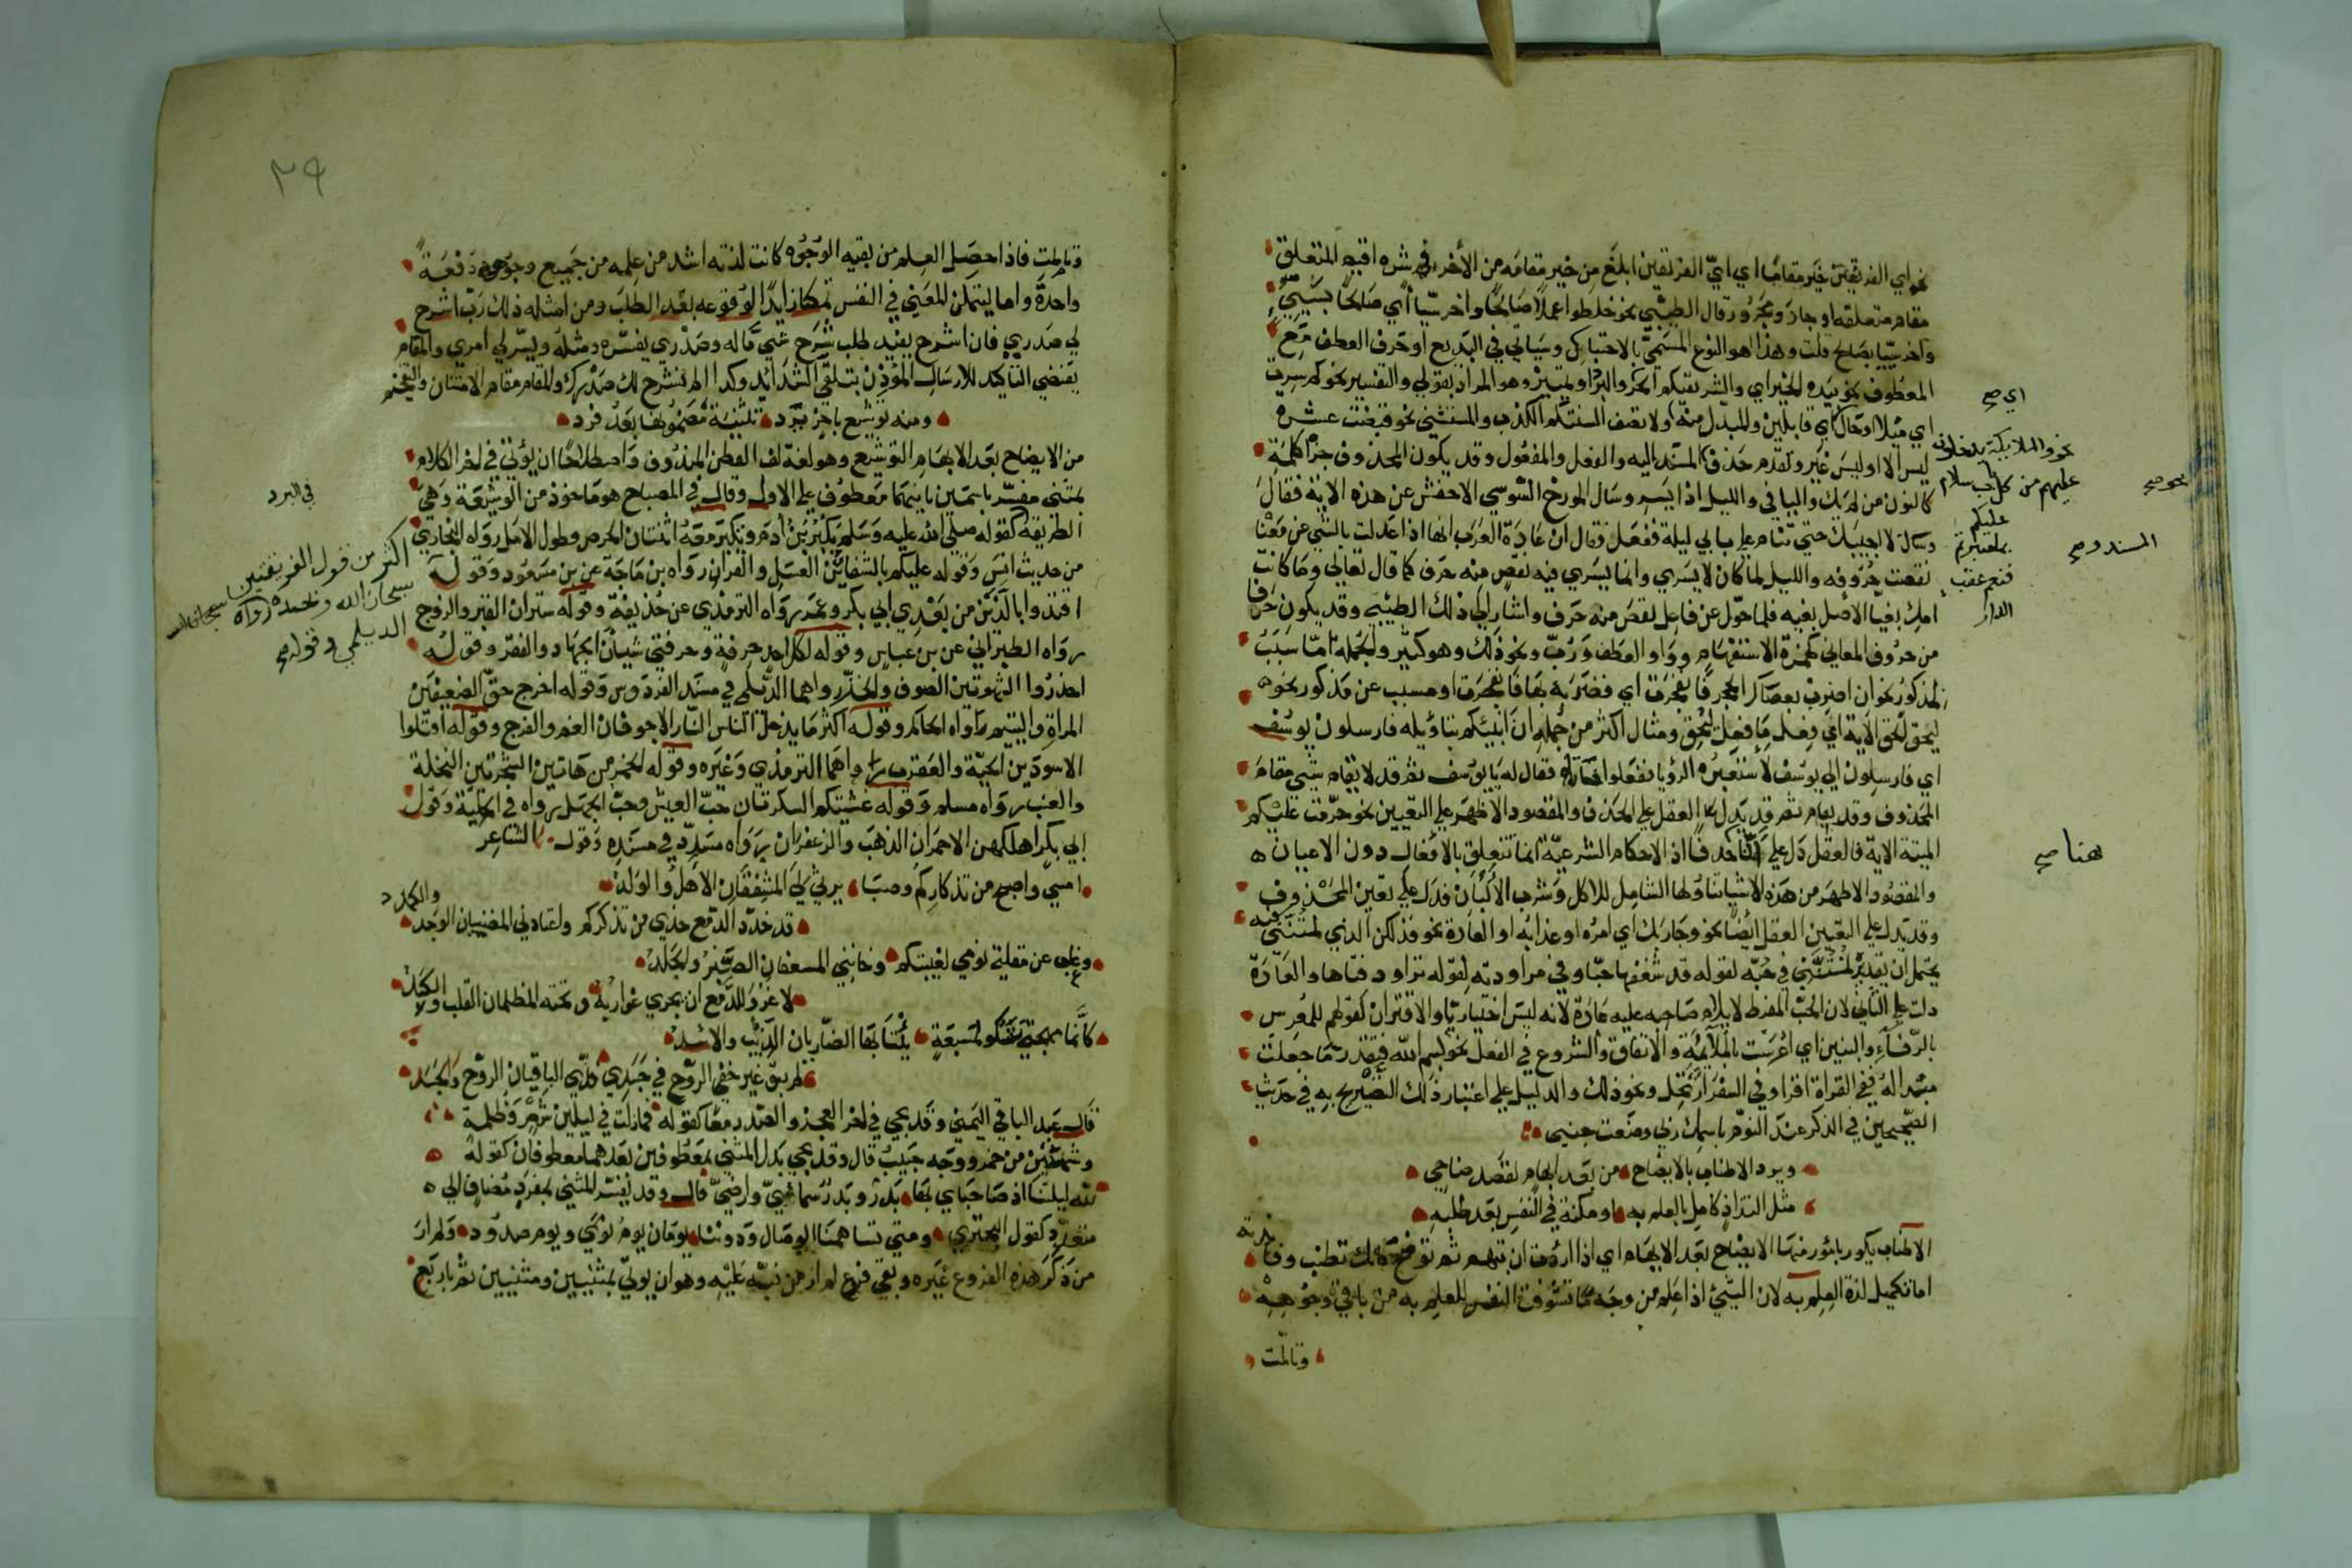 نحو اي الفريقين خير مقاما اي اي الفريقين ابلغ من خير مقامه من الاخر في شره اقيم المتعلق
مقام متعلقه او جار ومجرور قال الطيبي نحو خلطوا عملا صالحا واخر سيا اي صالحا بسيئ
واخر سيا بصالح قلت وهذا هو النوع المسمى بالاحتباك وسياتي في البديع او حرف العطف مع
المعطوف نحو بيده الخير اي والشر تقيكم الحر والبرد او تمييز وهو المراد بقولي والتفسير نحو كم سرت
اي ميلا او حال اي قايلين والمبدل منه ولا تصف السنتكم الكذب والمستثنى نحو قبضت عشرة
ليس الا او ليس غير وتقدم حذف المسند اليه والفعل والمفعول وقد يكون المحذوف جزء كلمة
كالنون من لم يك واليا في والليل اذا يسر وسال المورخ السدوسي الاخفش عن هذه الاية فقال
لا اجيبك حتى تنام على بابي ليلة ففعل فقال ان عادة العرب انها اذا عدلت بالشي عن معناه
نقصت حروفه والليل لما كان لا يسري وانما يسري فيه نقص منه حرف كما قال تعالى وما كانت
امك بغيا الاصل بغيه فلما حول عن فاعل نقص منه حرف واشار الى ذلك الطيبي وقد يكون حرفا
من حروف المعاني كهمزة الاستفهام وواو العطف ورب ونحو ذلك وهو كثير والجملة اما سبب
لمذكور نحو ان اضرب بعصاك الحجر فانفجرت اي فضربه بها فانفجرت او مسبب عن مذكور نحو
ليحق الحق الاية اي فعل ما فعل ليحق ومثال اكثر من جملة انا انبئكم بتاويله فارسلون يوسف
اي فارسلون الى يوسف لاستعبره الرؤيا ففعلوا فاتاه فقال له يا يوسف ثم قد لا يقام شي مقام
المحذوف وقد يقام ثم قد يدل العقل على الحذف والمقصود الاظهر على التعيين نحو حرمت عليكم
الميتة الاية فالعقل دل على ان هنا حذفا اذ الاحكام الشرعية انما تتعلق بالافعال دون الاعيان
والمقصود الاظهر من هذه الاشيا تناولها الشامل للاكل وشرب الالبان فدل على تعين المحذوف
وقد يدل على التعيين العقل ايضا نحو وجا ربك اي امره او عذابه او العادة نحو فذلكن الذي لمتنني فيه
يحتمل ان تقديره لمتنني في حبه لقوله قد شغفها حبا وفي مراودته لقوله تراود فتاها والعادة
دلت على الثاني لان الحب المفرط لا يلام صاحبه عليه عادة لانه ليس اختياريا والاقتران كقولهم للمعرس
بالرفاء والبنين اي اعرست بالملايمة والاتفاق والشروع في الفعل نحو بسم الله فيقدر ما جعلت
مبتدا له ففي القراة اقرا وفي السفر ارتحل ونحو ذلك والدليل على اعتبار ذلك التصريح به في حديث
الصحيحين في الذكر عند النوم باسمك ربي وضعت جنبي
ويرد الاطناب بالايضاح من بعد ابهام لقصد صاحي
مثل التذاذ كامل بالعلم به او مكنة في النفس بعد طلبه
الاطناب يكون بامور منها الايضاح بعد الابهام اي اذا اردت ان تبهم ثم توضح فانك تطنب وفايدته
اما تكميل لذة العلم به لان الشئ اذا علم من وجه ما تشوفت النفس للعلم به من باقي وجوهه
وتالمت
اي صح
نحو والملايكة يدخلون
عليهم من كل باب سلام
عليكم
بما صبرتم
فنعم عقبى
الدار
نحو صح
المسند وصح
هنا صح
٣٩
وتالمت فاذا حصل العلم من بقية الوجوه كانت لذته اشد من علمه من جميع وجوهه دفعة
واحدة واما ليتمكن المعنى في النفس تمكنا زايدا لوقوعه بعد الطلب ومن امثله ذلك رب اشرح
لي صدري فان اشرح يفيد طلب شرح شي ما له وصدري يفسره ومثله ويسر لي امري والمقام
يقتضي التاكيد للارسال المؤذن بتلقي الشدايد وكذا الم نشرح لك صدرك والمقام مقام الامتنان والتفخيم
ومنه توشيع باخر يرد تثنية مضمونها بعد فرد
من الايضاح بعد الابهام التوشيع وهو لغة لف القطن المندوف واصطلاحا ان يؤتى في اخر الكلام
بمثنى مفسر باسمين ثانيهما معطوف على الاول وقال في المصباح هو ماخوذ من الوشيعة وهي
الطريقة كقوله صلى الله عليه وسلم يكبر بن ادم ويكبر معه اثنتان الحرص وطول الامل رواه البخاري
من حديث انس وقوله عليكم بالشفائين العسل والقران رواه بن ماجة عن بن مسعود وقوله
اقتدوا بالذين من بعدي ابي بكر وعمر رواه الترمذي عن حذيفة وقوله ستران القبر والزوج
رواه الطبراني عن بن عباس وقوله لكل احد حرفة وحرفتي شيئان الجهاد والفقر وقوله
احذروا الشهوتين الصوف والخز رواهما الديلمي في مسند الفردوس وقوله احرج حق الضعيفين
المراة واليتيم رواه الحاكم وقوله اكثر ما يدخل الناس النار الاجوفان الفم والفرج وقوله اقتلوا
الاسودين الحية والعقرب رواهما الترمذي وغيره وقوله الخمر من هاتين الشجرتين النخلة
والعنب رواه مسلم وقوله غشيتكم السكرتان حب العيش وحب الجهل رواه في الحلية وقول
ابي بكر اهلكهن الاحمران الذهب والزعفران رواه مسدد في مسنده وقول الشاعر
امسي واصبح من تذكاركم وصبا يرثي لي المشفقان الاهل والولد
قد خدد الدمع خدي من تذكركم واعتادني المضنيان الوجد والكمد
وغاب عن مقلتي نومي لغيبتكم وخانني المسعدان الصبر والجلد
لا غرو للدمع ان تجري غواربه وتحته المظلمان القلب والكبد
كانما مهجتي شلو بمسبعة ينتابها الضاريان الذيب والاسد
لم يبق غير خفي الروح في جسدي فدى لك الباقيان الروح والجسد
قال عبد الباقي اليمني وقد يجي في اخر العجز والصدر معا كقوله فمازلت في ليلين شعر وظلمة
وشمسين من خمر ووجه حبيب قال وقد يجي بدل المثنى بمعطوفين بعدهما معطوفان كقوله
لله ليلتنا اذ صاحباي بها بدر وبدر سمائي وارضي قال وقد يفسر المثنى بمفرد مضاف الى
متعدد كقول البحتري ومتى تساهمنا الوصال ودوننا يومان يوم نوى ويوم صدود ولم ار
من ذكر هذه الفروع غيره وبقي فرع لم ار من نبه عليه وهو ان يولى بمثنيين ومثنيين ثم باربع
في البرد
اكثر من قول الفريقين سبحان الله
سبحان الله وبحمده رواه
الديلمي وقوله صح